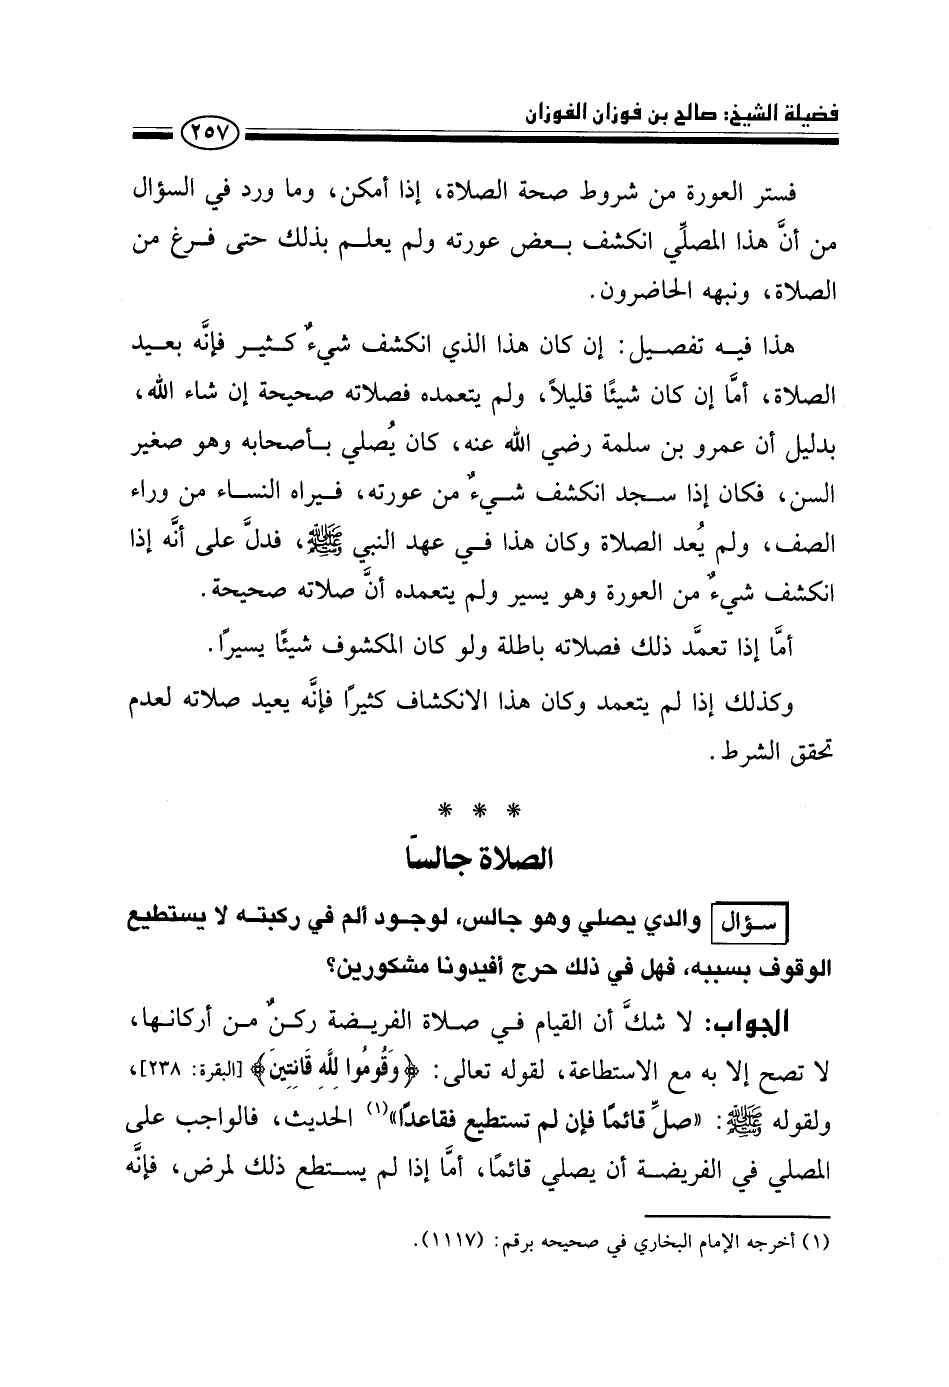 فضيلة الشيخ: صالح بن فوزان الفوزان
٢٥٧
فستر العورة من شروط صحة الصلاة، إذا أمكن، وما ورد في السؤال
من أنَّ هذا المصلِّي انكشف بعض عورته ولم يعلم بذلك حتى فرغ من
الصلاة، ونبهه الحاضرون.
هذا فيه تفصيل: إن كان هذا الذي انكشف شيءٌ كثير فإنَّه يعيد
الصلاة، أمَّا إن كان شيئًا قليلاً، ولم يتعمده فصلاته صحيحة إن شاء الله،
بدليل أن عمرو بن سلمة رضي الله عنه، كان يُصلي بأصحابه وهو صغير
السن، فكان إذا سجد انكشف شيءٌ من عورته، فيراه النساء من وراء
الصف، ولم يُعد الصلاة وكان هذا في عهد النبي ﷺ، فدلَّ على أنَّه إذا
انكشف شيءٌ من العورة وهو يسير ولم يتعمده أنَّ صلاته صحيحة.
أمَّا إذا تعمَّد ذلك فصلاته باطلة ولو كان المكشوف شيئًا يسيرًا.
وكذلك إذا لم يتعمد وكان هذا الانكشاف كثيرًا فإنَّه يعيد صلاته لعدم
تحقق الشرط.
* * *
الصلاة جالسًا
سؤال والدي يصلي وهو جالس، لوجود ألم في ركبته لا يستطيع
الوقوف بسببه، فهل في ذلك حرج أفيدونا مشكورين؟
الجواب: لا شكَّ أن القيام في صلاة الفريضة ركنٌ من أركانها،
لا تصح إلا به مع الاستطاعة، لقوله تعالى: ﴿وَقُومُوا لِلَّهِ قَانِتِينَ﴾ [البقرة: ٢٣٨]،
ولقوله ﷺ: «صلِّ قائمًا فإن لم تستطيع فقاعدًا»(١) الحديث، فالواجب على
المصلي في الفريضة أن يصلي قائمًا، أمَّا إذا لم يستطع ذلك لمرض، فإنَّه
(١) أخرجه الإمام البخاري في صحيحه برقم: (١١١٧).